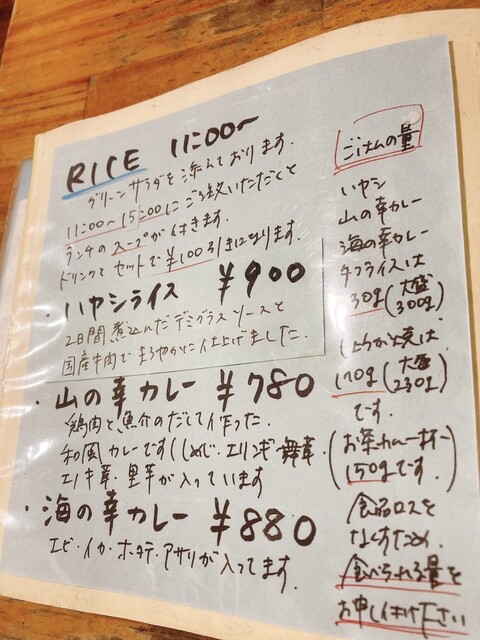 RICE 11:00〜
グリーンサラダを添えております.
11:00〜15:00にご注文いただくと
ランチのスープが付きます.
ドリンクとセットで¥100引きになります.
・ハヤシライス ¥900
2日間煮込んだデミグラスソースと
国産牛肉でまろやかに仕上げました.
・山の幸カレー ¥780
鶏肉と魚介のだしで作った.
和風カレーです(しめじ・エリンギ・舞茸・
エノキ茸・里芋が入っています
・海の幸カレー ¥880
エビ・イカ・ホタテ・アサリが入ってます.
ごはんの量
ハヤシ
山の幸カレー
海の幸カレー
タコライスは
230g(大盛300g)
しょうが焼は,
170g(大盛230g)
です.
(お茶わん一杯〜
150gです.)
食品ロスを
なくすため,
食べられる量を
お申し付け下さい